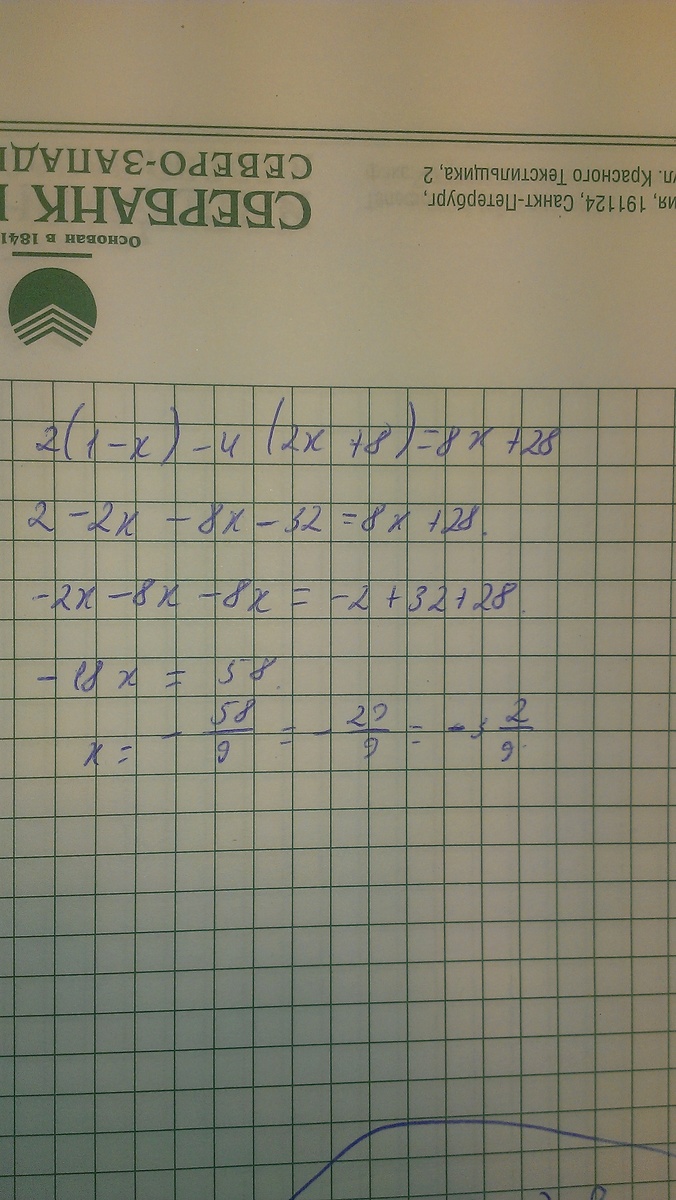 ул. Красного Текстильщика, 2
ия, 191124, Санкт-Петербург,
СЕВЕРО-ЗАПАДН
СБЕРБАНК
Основан в 1841
2(1-x)-4(2x+8)=8x+28
2-2x-8x-32=8x+28.
-2x-8x-8x=-2+32+28.
-18x=58.
x=-\frac{58}{9}=-\frac{29}{9}=-3\frac{2}{9}